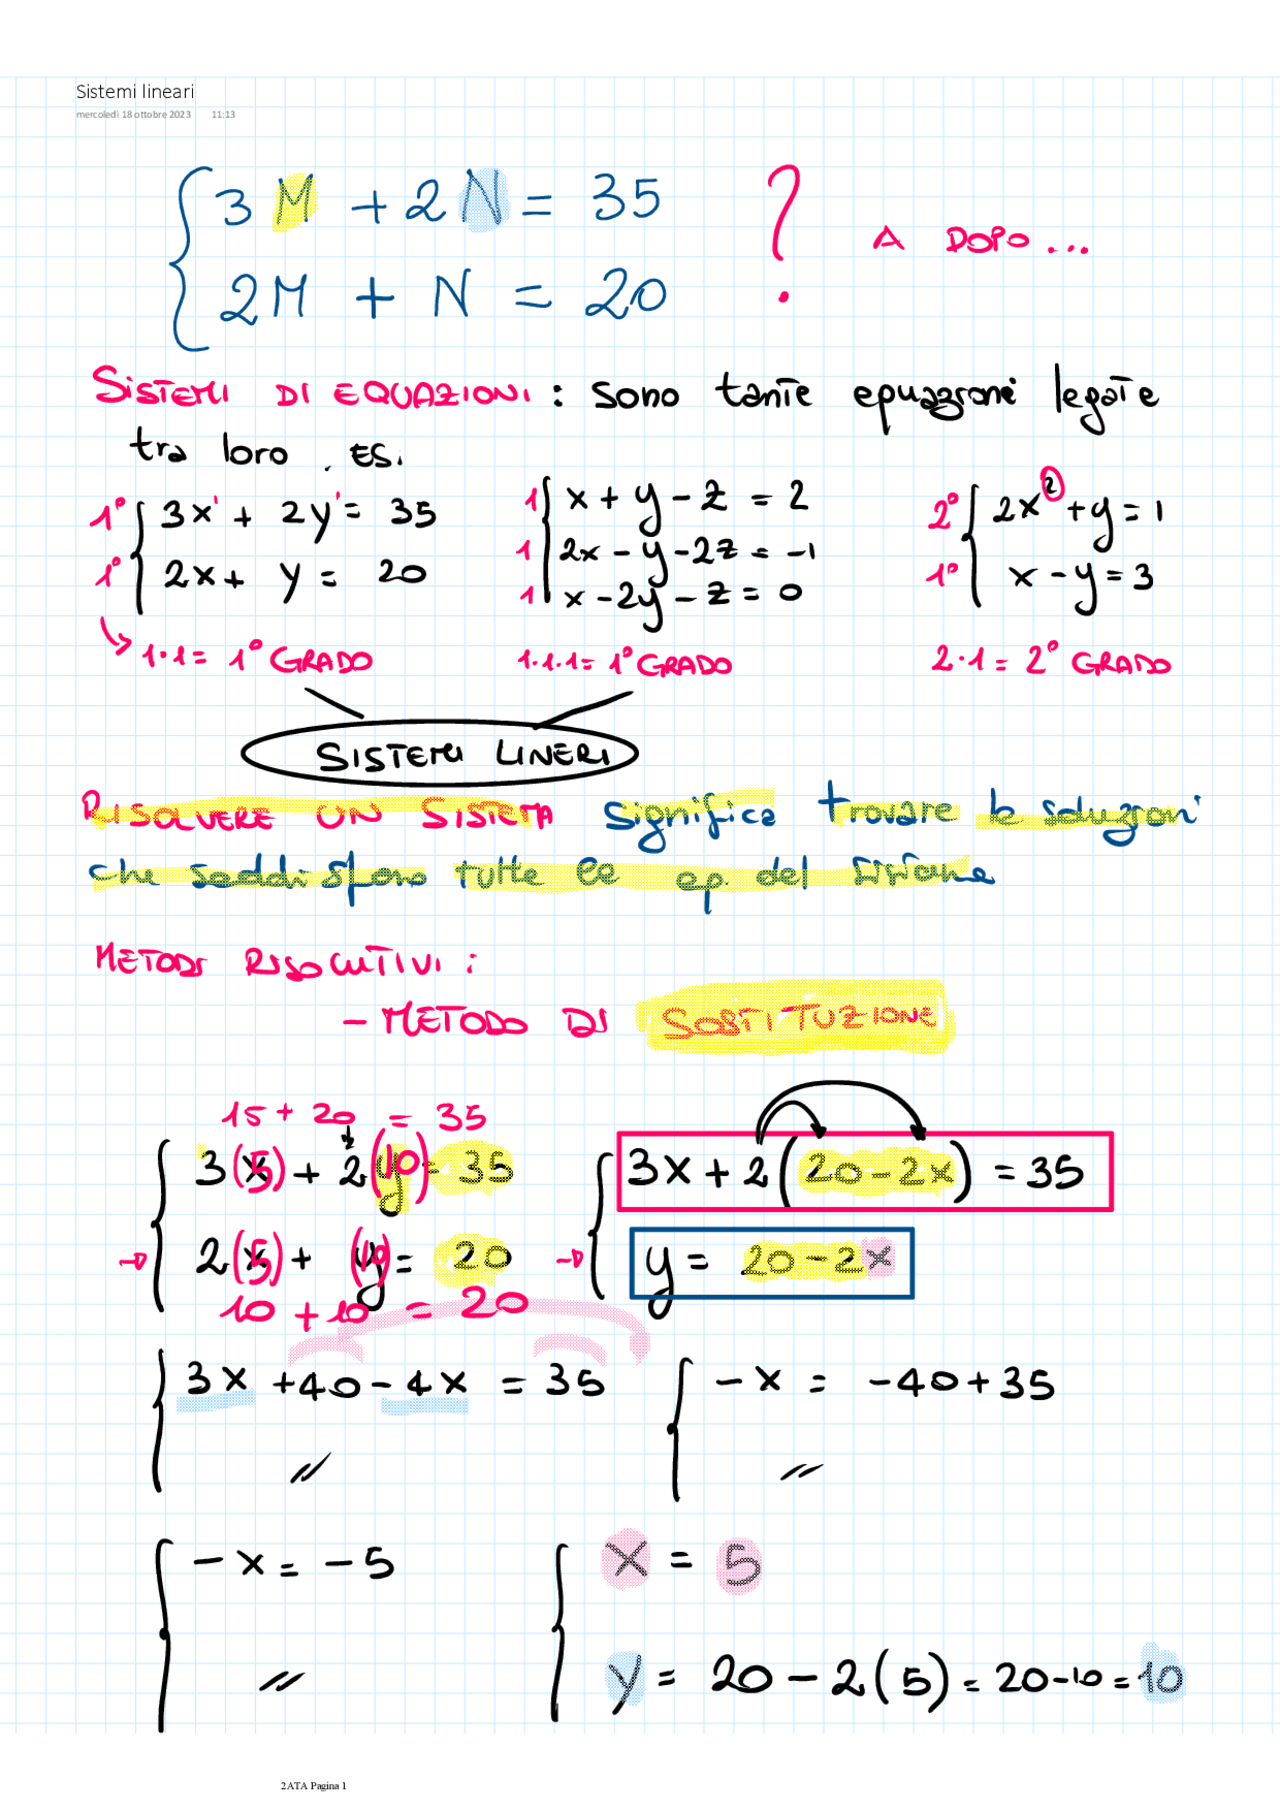 Sistemi lineari
mercoledì 18 ottobre 2023 11:13
3M + 2N = 35 ?
A DOPO...
2M + N = 20
SISTEMI DI EQUAZIONI : sono tante equazioni legate
tra loro. ES.
1° 3x' + 2y' = 35
1° 2x + y = 20
1 x + y - z = 2
1 2x - y - 2z = -1
1 x - 2y - z = 0
2° 2x² + y = 1
1° x - y = 3
1·1 = 1° GRADO
1·1·1 = 1° GRADO
2·1 = 2° GRADO
SISTEMI LINERI
RISOLVERE UN SISTEMA significa trovare le soluzioni
che soddisfano tutte le eq. del sistema
METODI RISOLUTIVI :
- METODO DI SOSTITUZIONE
15 + 20 = 35
3(5) + 2y(10) = 35
2(5) + y(10) = 20
10 + 10 = 20
3x + 2(20 - 2x) = 35
y = 20 - 2x
3x + 40 - 4x = 35
//
-x = -40 + 35
//
-x = -5
//
x = 5
y = 20 - 2(5) = 20 - 10 = 10
2ATA Pagina 1